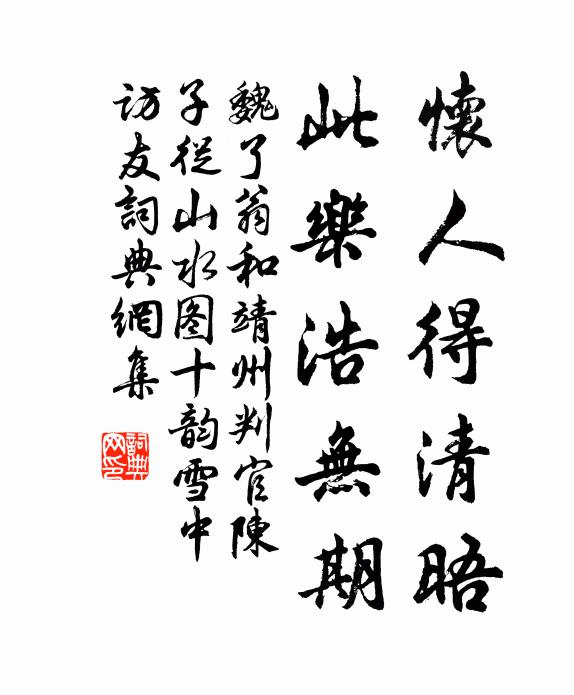 懷人得清晤
此樂浩無期
魏了翁和靖州判官陳
子從山水图十韵雪中
访友詞典網集
詞典
网印